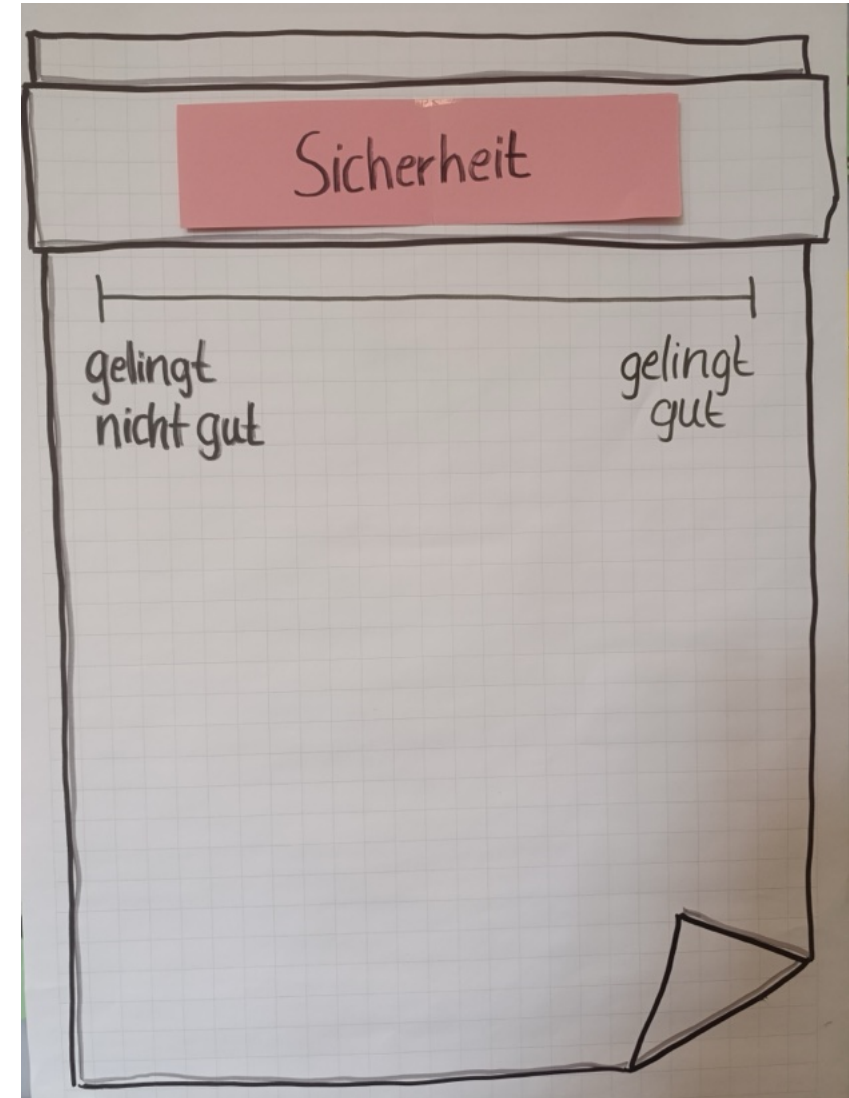 Sicherheit
gelingt
nicht gut
gelingt
gut